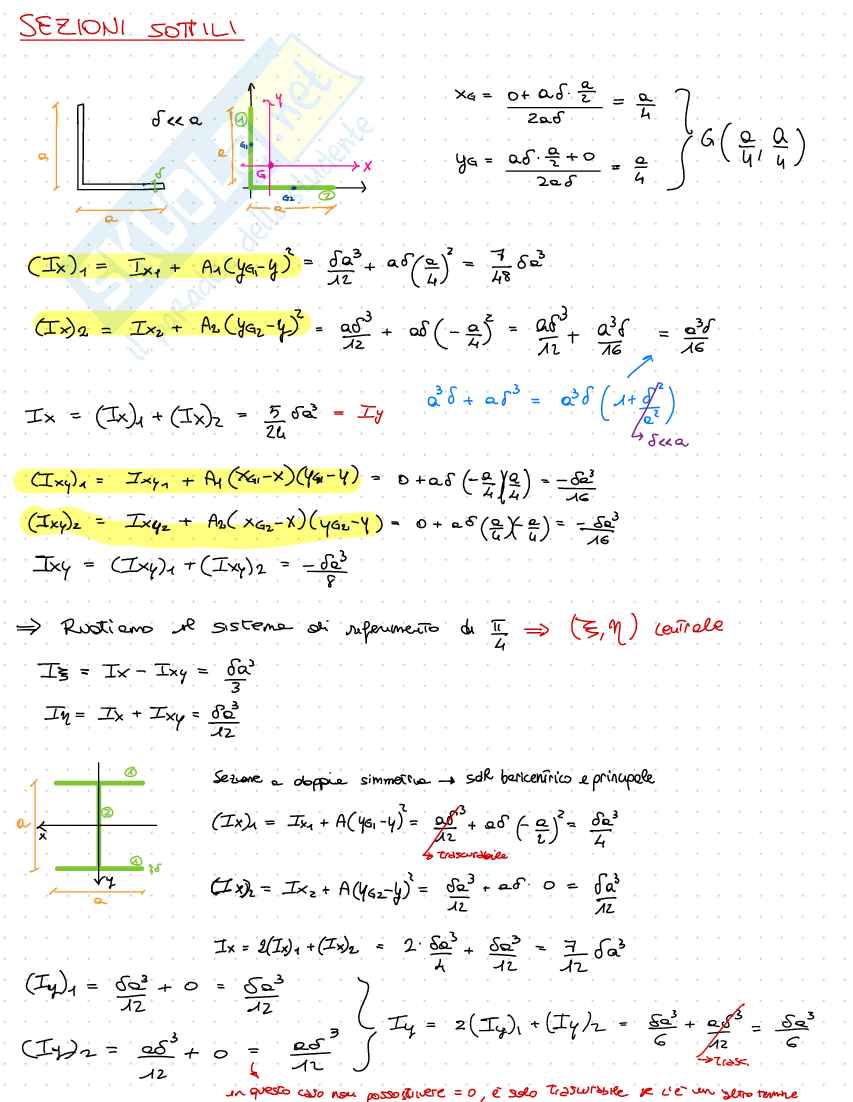 SEZIONI SOTTILI
δ<<a
a
a
δ
1
G1
G
G2
2
a
a
X
Y
xG = (0 + aδ·a/2)/(2aδ) = a/4
yG = (aδ·a/2 + 0)/(2aδ) = a/4
G(a/4, a/4)
(Ix)1 = Ix1 + A1(yG1-y)² = δa³/12 + aδ(a/4)² = 7/48 δa³
(Ix)2 = Ix2 + A2(yG2-y)² = aδ³/12 + aδ(-a/4)² = aδ³/12 + a³δ/16 = a³δ/16
a³δ + aδ³ = a³δ(1+δ²/a²)
δ<<a
Ix = (Ix)1 + (Ix)2 = 5/24 δa³ = Iy
(Ixy)1 = Ixy1 + A1(xG1-x)(yG1-y) = 0 + aδ(-a/4)(a/4) = -δa³/16
(Ixy)2 = Ixy2 + A2(xG2-x)(yG2-y) = 0 + aδ(a/4)(-a/4) = -δa³/16
Ixy = (Ixy)1 + (Ixy)2 = -δa³/8
⇒ Ruotiamo il sistema di riferimento di π/4 ⇒ (ξ,η) centrale
Iξ = Ix - Ixy = δa³/3
Iη = Ix + Ixy = δa³/12
1
2
1
a
x
y
δ
a
Sezione a doppia simmetria → sdR baricentrico e principale
(Ix)1 = Ix1 + A(yG1-y)² = aδ³/12 + aδ(-a/2)² = δa³/4
→ trascurabile
(Ix)2 = Ix2 + A(yG2-y)² = δa³/12 + aδ·0 = δa³/12
Ix = 2(Ix)1 + (Ix)2 = 2·δa³/4 + δa³/12 = 7/12 δa³
(Iy)1 = δa³/12 + 0 = δa³/12
(Iy)2 = aδ³/12 + 0 = aδ³/12
Iy = 2(Iy)1 + (Iy)2 = δa³/6 + aδ³/12 = δa³/6
→ trasc.
in questo caso non posso scrivere = 0, è solo trascurabile se c'è un altro termine